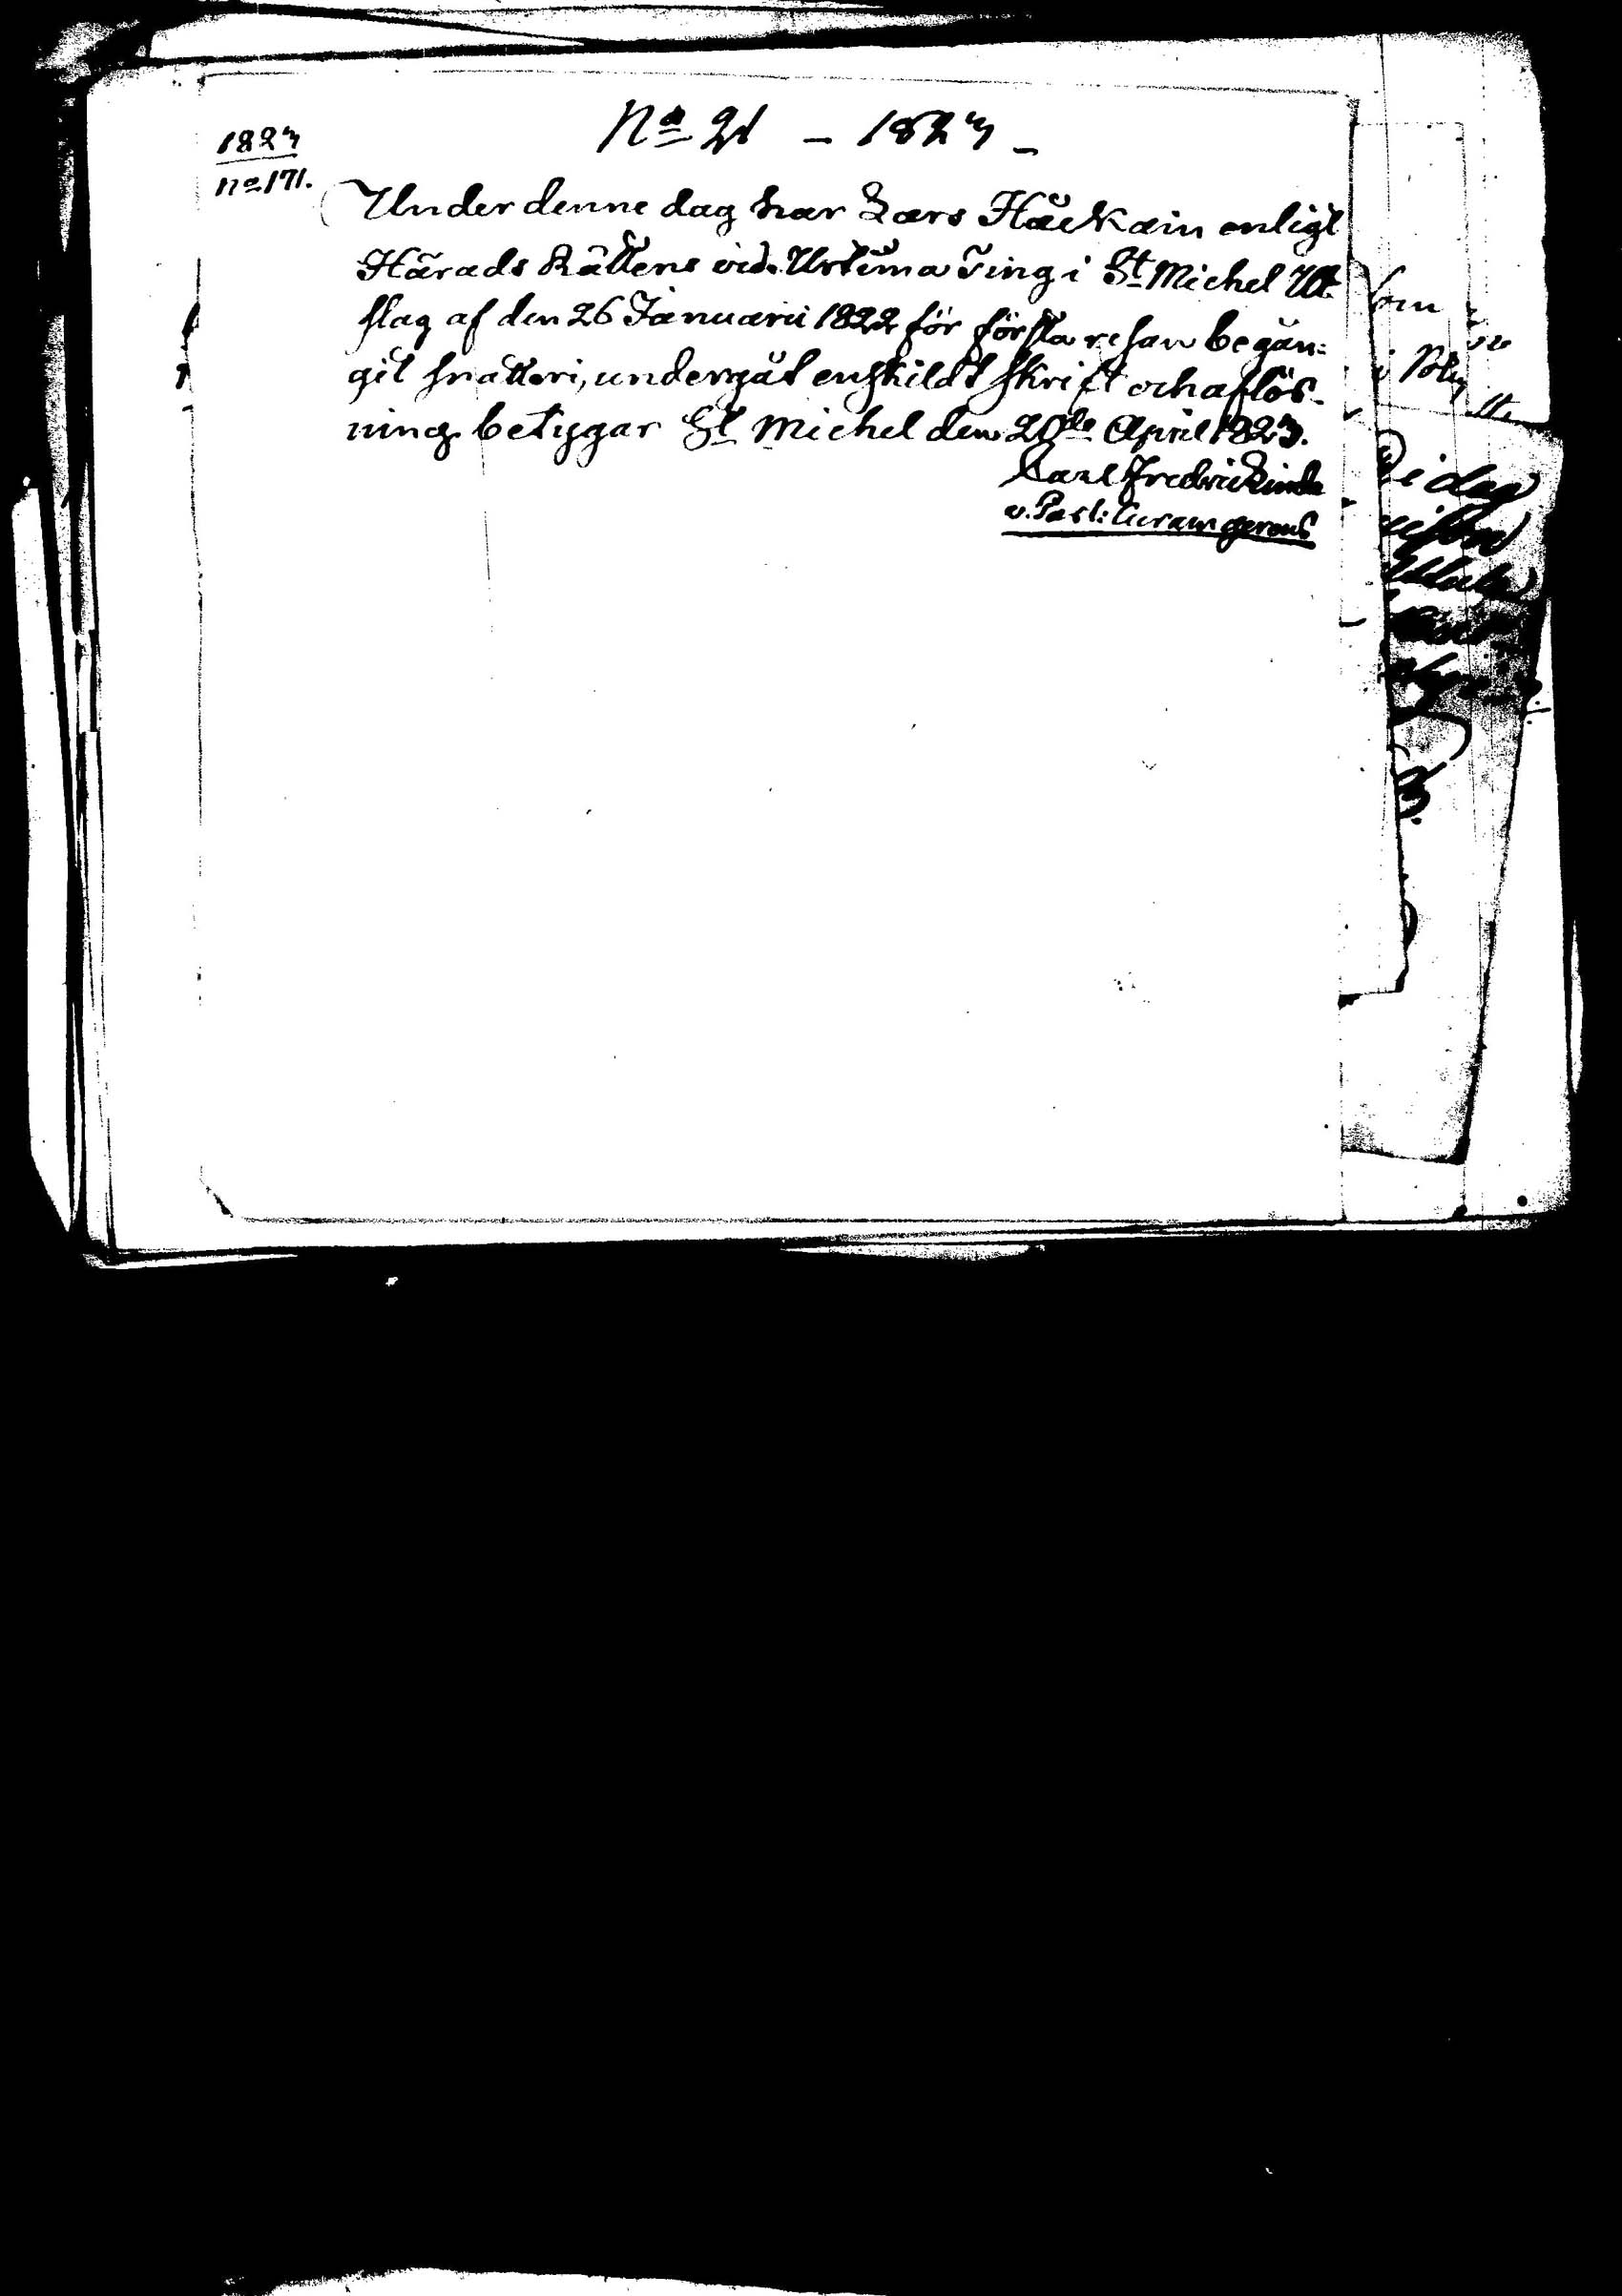 No 21 - 1823 -
1823
No 171.
Under denne dag har Lars Häckain enligt
Härads Rättens vid Urtima Ting i St Michel Ut-
slag af den 26 Januarii 1822 för första resan begån=
git snatteri, undergåt enskildt skrift och aflös-
ning betygar St Michel den 20de April 1823.
Carl Fredric
v. Past: Curam gerens
i dag